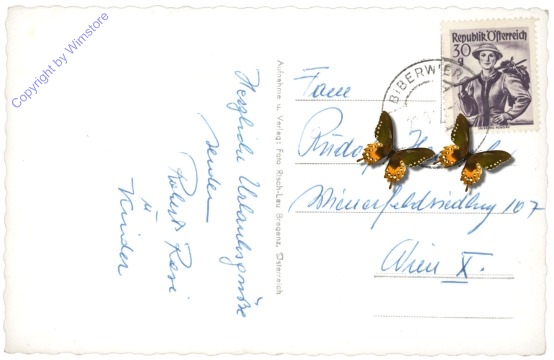 Copyright by Wimstore
Herzliche Urlaubsgrüße
senden
Robert Resi
u
Kinder
Aufnahme u. Verlag: Foto Risch-Lau Bregenz, Österreich
Republik Österreich
30
g
BIBERWIER
Fam
Rudolf
Wienerfeldsiedlung 107
Wien X.